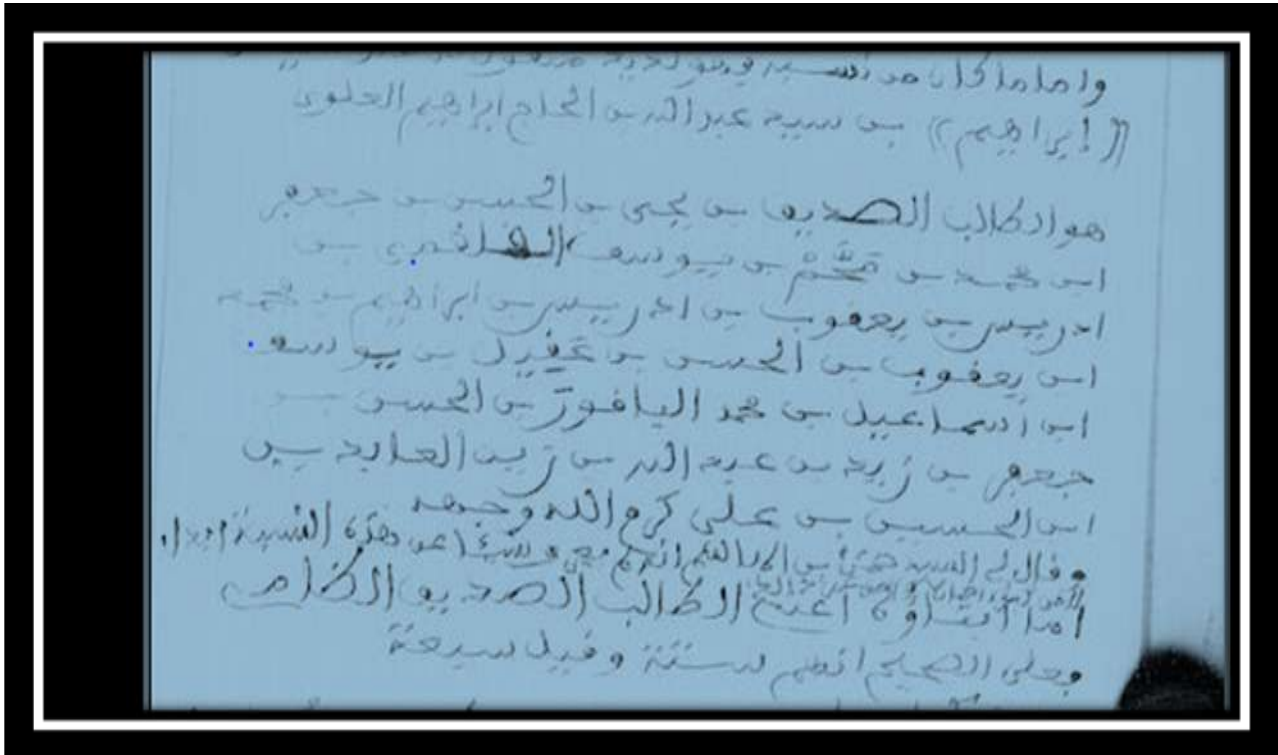 واما ما كان من نسبه فهو لديه منقول
((إبراهيم)) بن سيد عبد الله بن الحاج ابراهيم العلوي
هو الطالب الصديق بن يحيى بن الحسن بن جعفر
ابن محمد بن محم بن يوسف بن
ادريس بن يعقوب بن ادريس بن ابراهيم بن محمد
ابن يعقوب بن الحسن بن عقيل بن يوسف
ابن اسماعيل بن محمد اليافور بن الحسن بن
جعفر بن زيد بن عبد الله بن زين العابدين
ابن الحسين بن علي كرم الله وجهه
وقال لي السيد بن انهم عن هذه النسبة
اما أبناؤه أعني الطالب الصديق
فعلى الصحيح انهم ستة وقيل سبعة